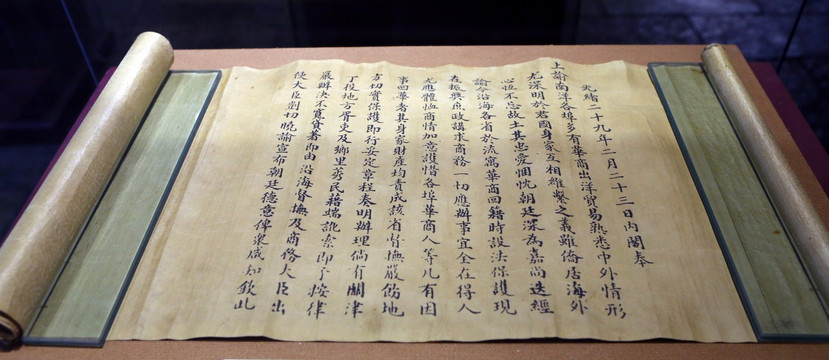 光緒二十九年二月二十三日內閣奉
上諭南洋各埠多有華商出洋貿易熟悉中外情形
尤深明於君國身家互相維繫之義雖僑居海外
心恆不忘故土其忠愛悃忱朝廷深為嘉尚迭經
諭令沿海各省於流寓華商回籍時設法保護現
在振興庶政講求商務一切應辦事宜全在得人
尤應體恤商情加意護惜各埠華商人等凡有因
事回華者其身家財產均責成該省督撫嚴飭地
方切實保護即行妥定章程奏明辦理倘有關津
丁役地方胥吏及鄉里莠民藉端訛索即予按律
嚴辦決不寬貸著即由沿海督撫及商務大臣出
使大臣剴切曉諭宣布朝廷德意俾眾咸知欽此